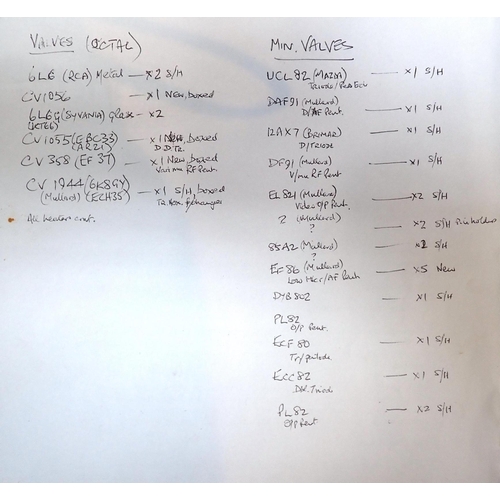 VALVES (OCTAL)
6L6 (RCA) Metal — x2 S/H
CV1056 — x1 New, boxed
6L6G (SYVANIA) glass — x2
CV1055 (EBC33) — x1 boxed
(AR21) D.D.Tr.
CV358 (EF37) — x1 New, boxed
Vari mu RF Pent.
CV1944 (6K8GY) — x1 S/H, boxed
(Mullard) (ECH35)
All heater cont.
MIN. VALVES
UCL82 (MAZDA) — x1 S/H
Triode/Pent
DAF91 (Mullard) — x1 S/H
D/AF Pent.
12AX7 (BRIMAR) — x1 S/H
D/TRIODE
DF91 (Mullard) — x1 S/H
V/mu RF Pent.
EL821 (Mullard) — x2 S/H
Video O/P Pent.
? (Mullard) — x2 S/H
?
85A2 (Mullard) — S/H
?
EF86 (Mullard) — x5 New
Low Micr/AF Pent
DYB802 — x1 S/H
PL82
O/P Pent.
ECF80 — x1 S/H
Tr/pentode
ECC82 — x1 S/H
Dbl. Triode
PL82 — x2 S/H
O/P Pent